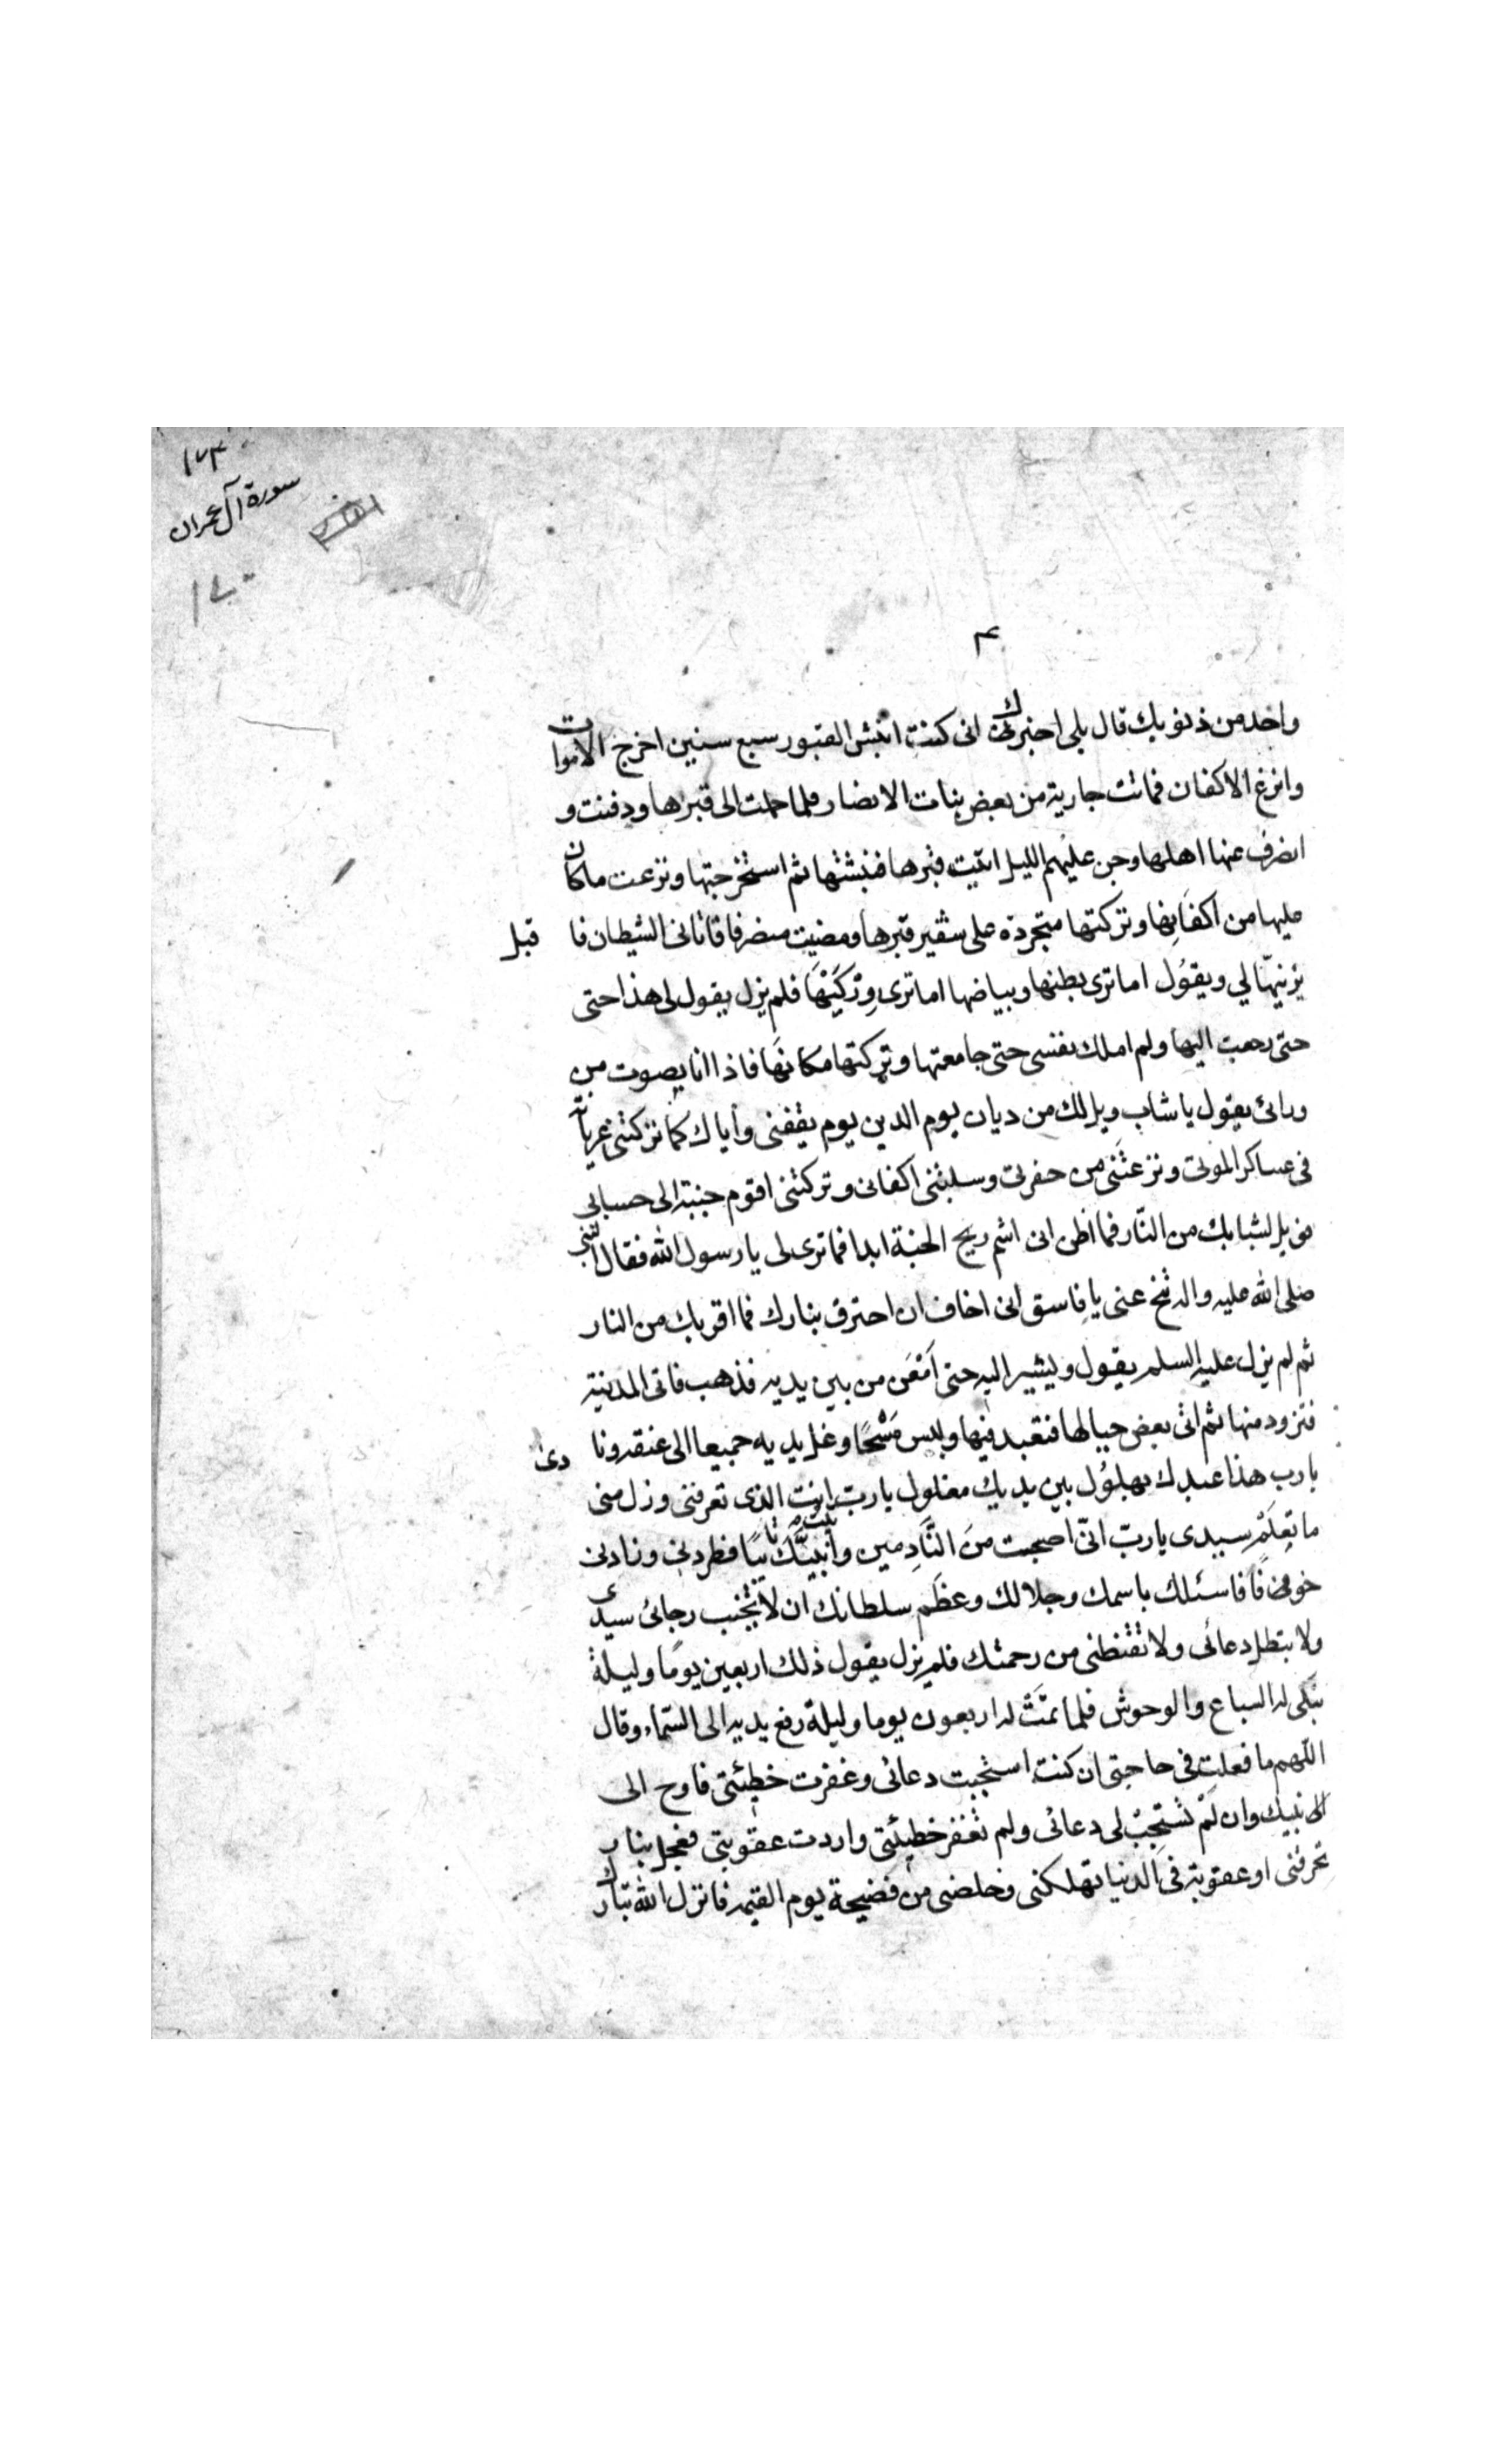 ١٧٣
سورة آل عمران
١٧٠
واحد من ذنوبك قال بلى اخبرك انى كنت انبش القبور سبع سنين اخرج الاموات
وانزع الاكفان فماتت جارية من بعض بنات الانصار فلما حملت الى قبرها ودفنت و
انصرف عنها اهلها وجن عليهم الليل اتيت قبرها فنبشتها ثم استخرجتها ونزعت ما كان
عليها من اكفانها وتركتها متجردة على شفير قبرها ومضيت منصرفا فاتانى الشيطان فا قبل
يزينها لي ويقول اما ترى بطنها وبياضها اما ترى وركيها فلم يزل يقول لى هذا حتى
حتى رجعت اليها ولم املك نفسى حتى جامعتها وتركتها مكانها فاذا انا بصوت من
ورائى يقول يا شاب ويل لك من ديان يوم الدين يوم يقفنى واياك كما تركتنى عريانة
فى عساكر الموتى ونزعتنى من حفرتى وسلبتنى اكفانى وتركتنى اقوم جنبة الى حسابى
فويل لشبابك من النار فما اظن انى اشم ريح الجنة ابدا فما ترى لى يا رسول الله فقال النبى
صلى الله عليه واله تنح عنى يا فاسق انى اخاف ان احترق بنارك فما اقربك من النار
ثم لم يزل عليه السلم يقول ويشير اليه حتى اَمْعَن من بين يديه فذهب فاتى المدينة
فتزود منها ثم اتى بعض جبالها فتعبد فيها ولبس مسْحًا وغل يديه جميعا الى عنقه ونا دى
يا رب هذا عبدك بهلول بين يديك مغلول يا رب انت الذى تعرفنى وزل منى
ما تعلم سيدى يا رب انّى اصبحت منَ النَّادِمين وأتيت نَبيَّكَ تائبًا فطردنى وزادنى
خوفًا فاسئلك باسمك وجلالك وعظم سلطانك ان لا تخيب رجائى سيدى
ولا تبطل دعائى ولا تقنطنى من رحمتك فلم يزل يقول ذلك اربعين يومًا وليلة
تبكى له السباع والوحوش فلما تمَّت له اربعون يوما وليلة رفع يديه الى السّماء وقال
اللهم ما فعلت فى حاجتى ان كنت استجبت دعائى وغفرت خطيئتى فاوح الى
الى نبيك وان لَمْ تستجِبْ لى دعائى ولم تغفر خطيئتى واردت عقوبتى فعجل بنار
تحرقنى او عقوبة فى الدنيا تهلكنى وخلصنى من فضيحة يوم القيمه فانزل الله تبارك